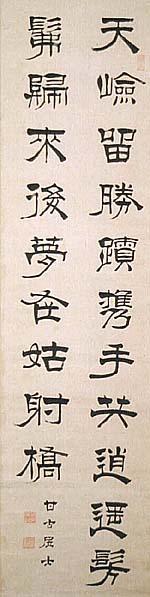 天嶮留勝蹟携手共逍遥髣
髴歸來後夢在姑射橋
甘古居士